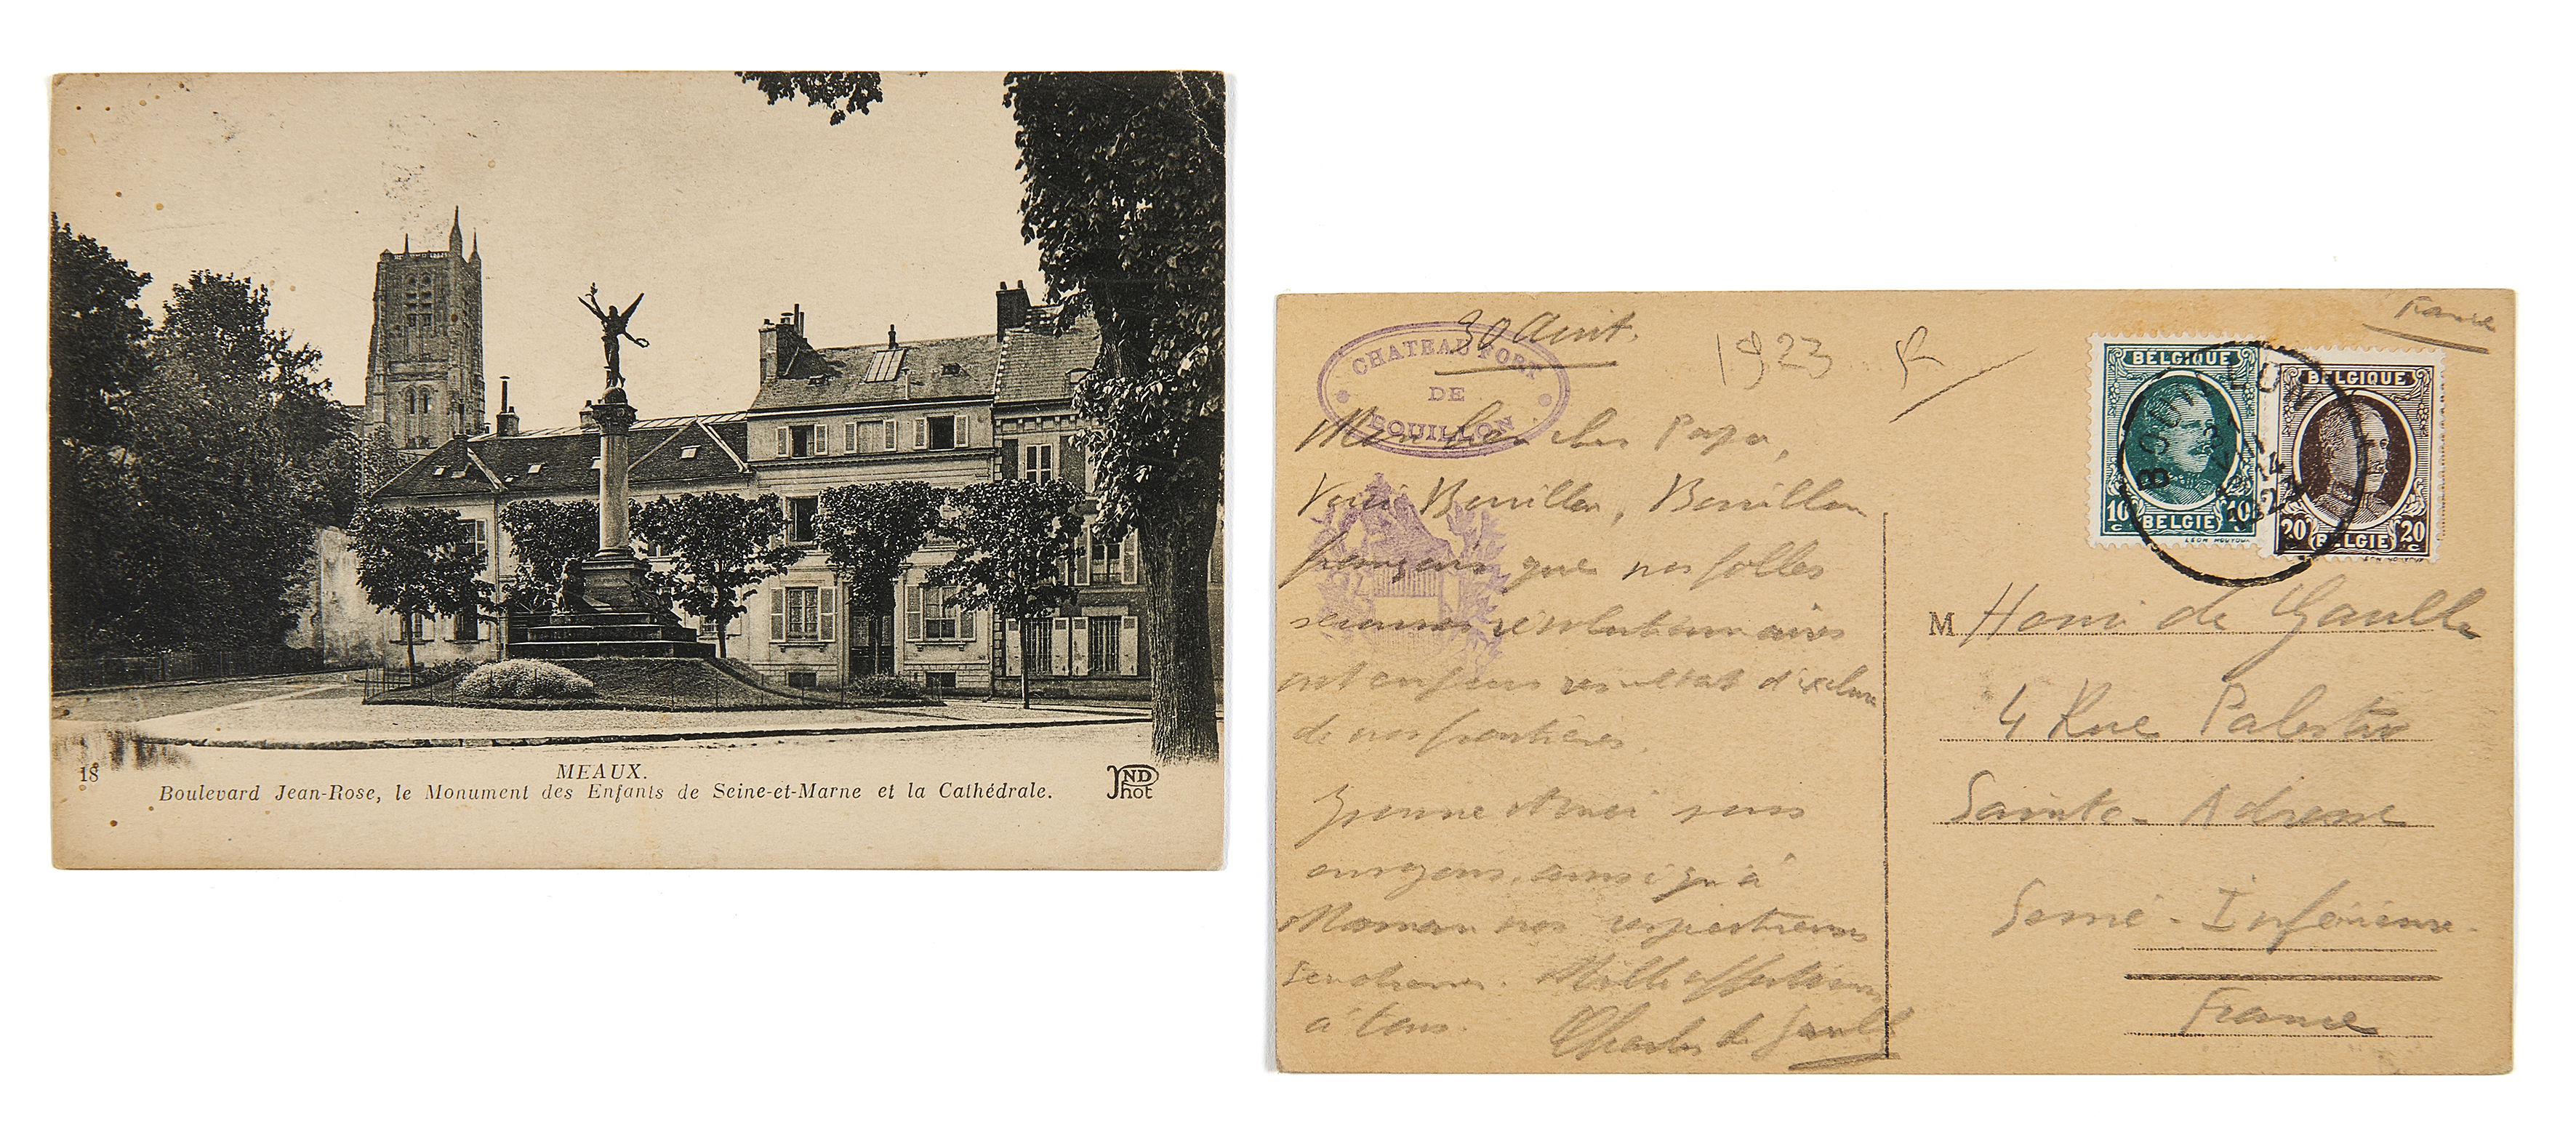 18
MEAUX.
Boulevard Jean-Rose, le Monument des Enfants de Seine-et-Marne et la Cathédrale.
ND
Phot
30 Août.
1923
CHATEAU FORT
DE
BOUILLON
Mon bien cher Papa,
Voici Bouillon, Bouillon
français que nos folles
révolutionnaires
ont eu pour résultat d'exclure
de nos frontières.
Yvonne et moi vous
envoyons, ainsi qu'à
Maman nos respectueuses
tendresses. Mille affections
à tous.
Charles de Gaulle
France
BELGIQUE
10 c BELGIE 10 c
BELGIQUE
20 c BELGIE 20 c
BOUILLON
M Henri de Gaulle
4 Rue
Sainte-Adresse
Seine-Inférieure.
France